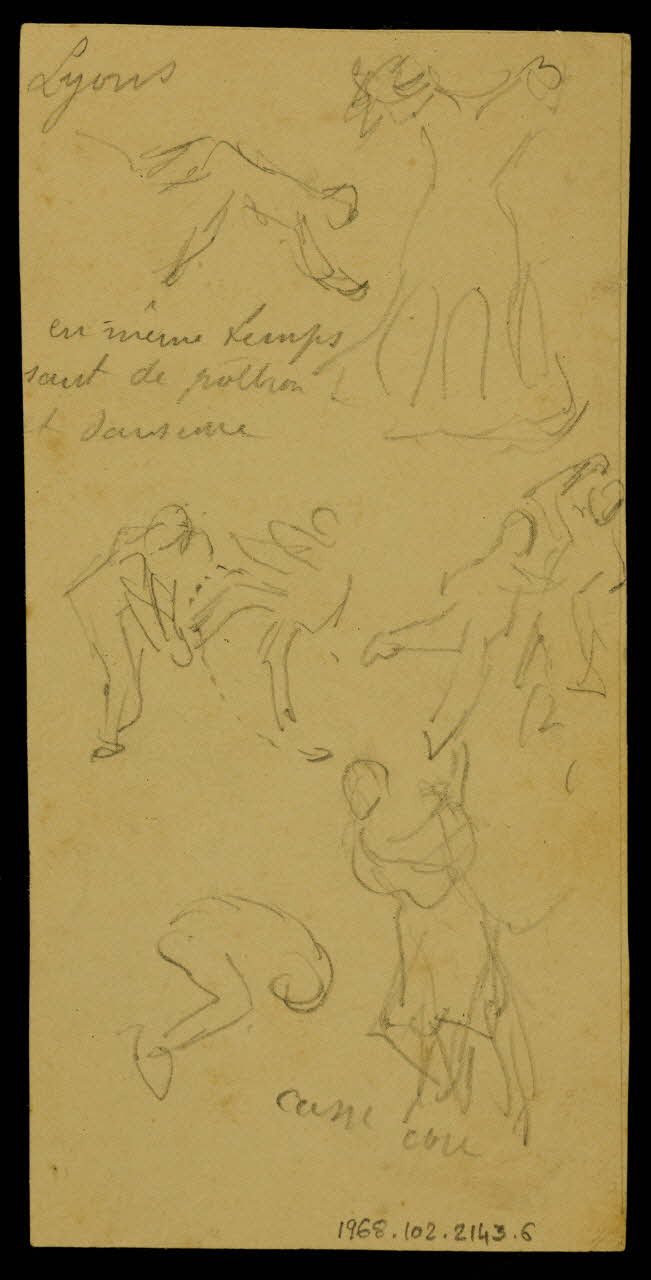 Lyons
en même temps
saut de poltron
et danseuse
casse cou
1968.102.2143.6